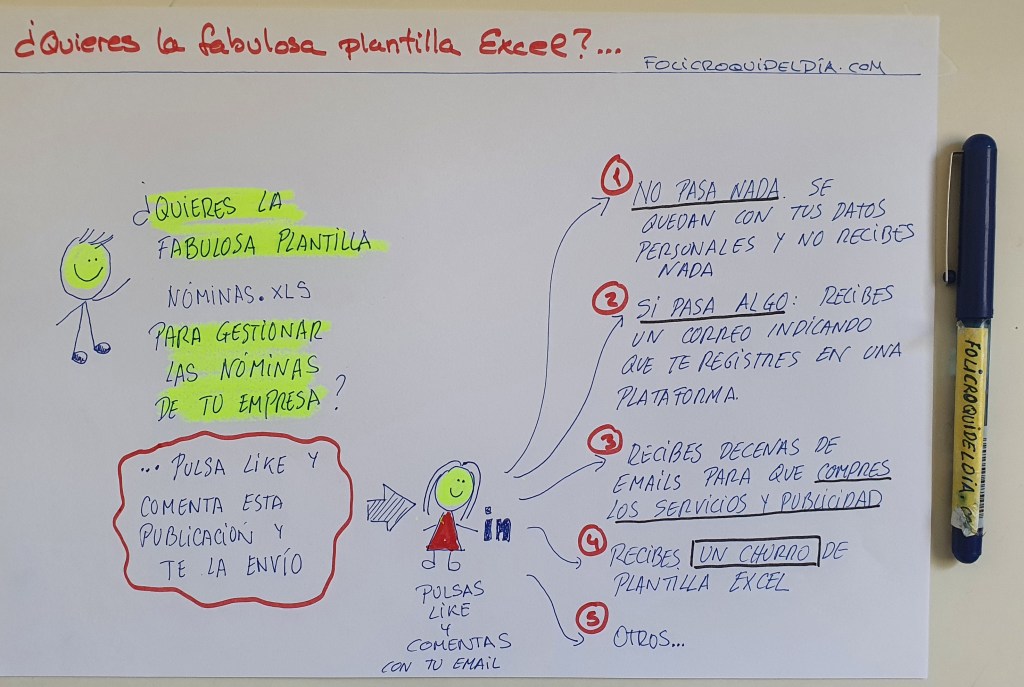 ¿Quieres la fabulosa plantilla Excel?...
FOLICROQUIDELDÍA.COM
¿QUIERES LA
FABULOSA PLANTILLA
NÓMINAS.XLS
PARA GESTIONAR
LAS NÓMINAS
DE TU EMPRESA?
... PULSA LIKE Y
COMENTA ESTA
PUBLICACIÓN Y
TE LA ENVÍO
in
PULSAS
LIKE
Y
COMENTAS
CON TU EMAIL
1 NO PASA NADA. SE
QUEDAN CON TUS DATOS
PERSONALES Y NO RECIBES
NADA
2 SI PASA ALGO: RECIBES
UN CORREO INDICANDO
QUE TE REGISTRES EN UNA
PLATAFORMA.
3 RECIBES DECENAS DE
EMAILS PARA QUE COMPRES
LOS SERVICIOS Y PUBLICIDAD
4 RECIBES UN CHURRO DE
PLANTILLA EXCEL
5 OTROS...
FOLICROQUIDELDÍA.